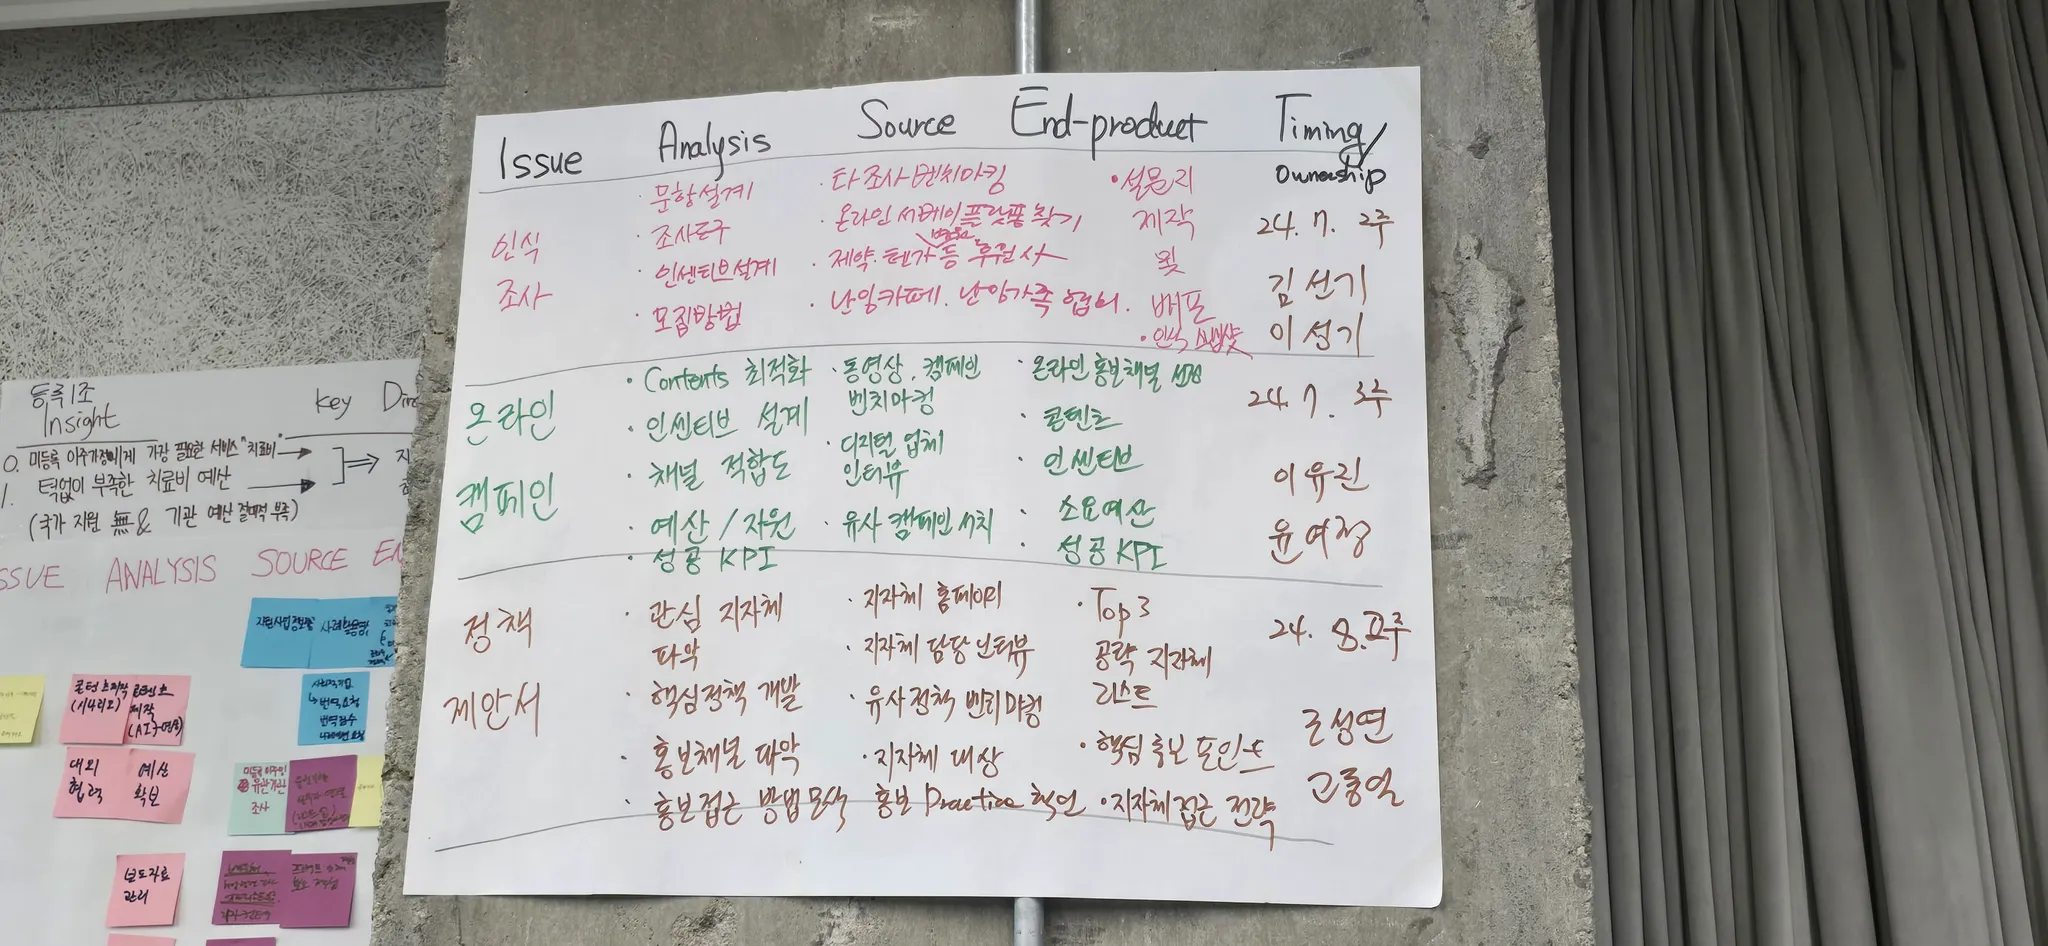 Issue Analysis Source End-product Timing/
Ownership
인식
조사
· 문항설계
· 조사도구
· 인센티브설계
· 모집방법
· 타 조사 벤치마킹
· 온라인 서베이 플랫폼 찾기
병원
· 제약·헨가 등 후원사
· 난임카페. 난임가족 협회.
· 설문지
제작
및
배포
· 인식 스냅샷
24. 7. 2주
김선기
이성기
온라인
캠페인
· Contents 최적화
· 인센티브 설계
· 채널 적합도
· 예산 / 자원
· 성공 KPI
· 동영상. 캠페인
벤치마킹
· 디지털 업체
인터뷰
· 유사 캠페인 서치
· 온라인 홍보채널 선정
· 콘텐츠
· 인센티브
· 소요예산
· 성공 KPI
24. 7. 3주
이유진
윤여정
정책
제안서
· 관심 지자체
파악
· 핵심정책 개발
· 홍보채널 파악
· 홍보접근 방법 모색
· 지자체 홈페이지
· 지자체 담당 인터뷰
· 유사정책 벤치마킹
· 지자체 대상
홍보 Practice 확인
· Top 3
공략 지자체
리스트
· 핵심 홍보 포인트
· 지자체 접근 전략
24. 8.
고동일
등록1조
Insight
Key
0. 미등록 이주가정에게 가장 필요한 서비스 "치료비" →
1. 턱없이 부족한 치료비 예산 →
(국가 지원 無 & 기관 예산 절대적 부족)
⇒
ISSUE ANALYSIS SOURCE
지원사업 정보
콘텐츠제작
(시나리오)
콘텐츠
제작
(AI구연동)
→ 번역요청
번역검수
대외
협력
예산
확보
미등록 이주민
유관기관
조사
보도자료
관리